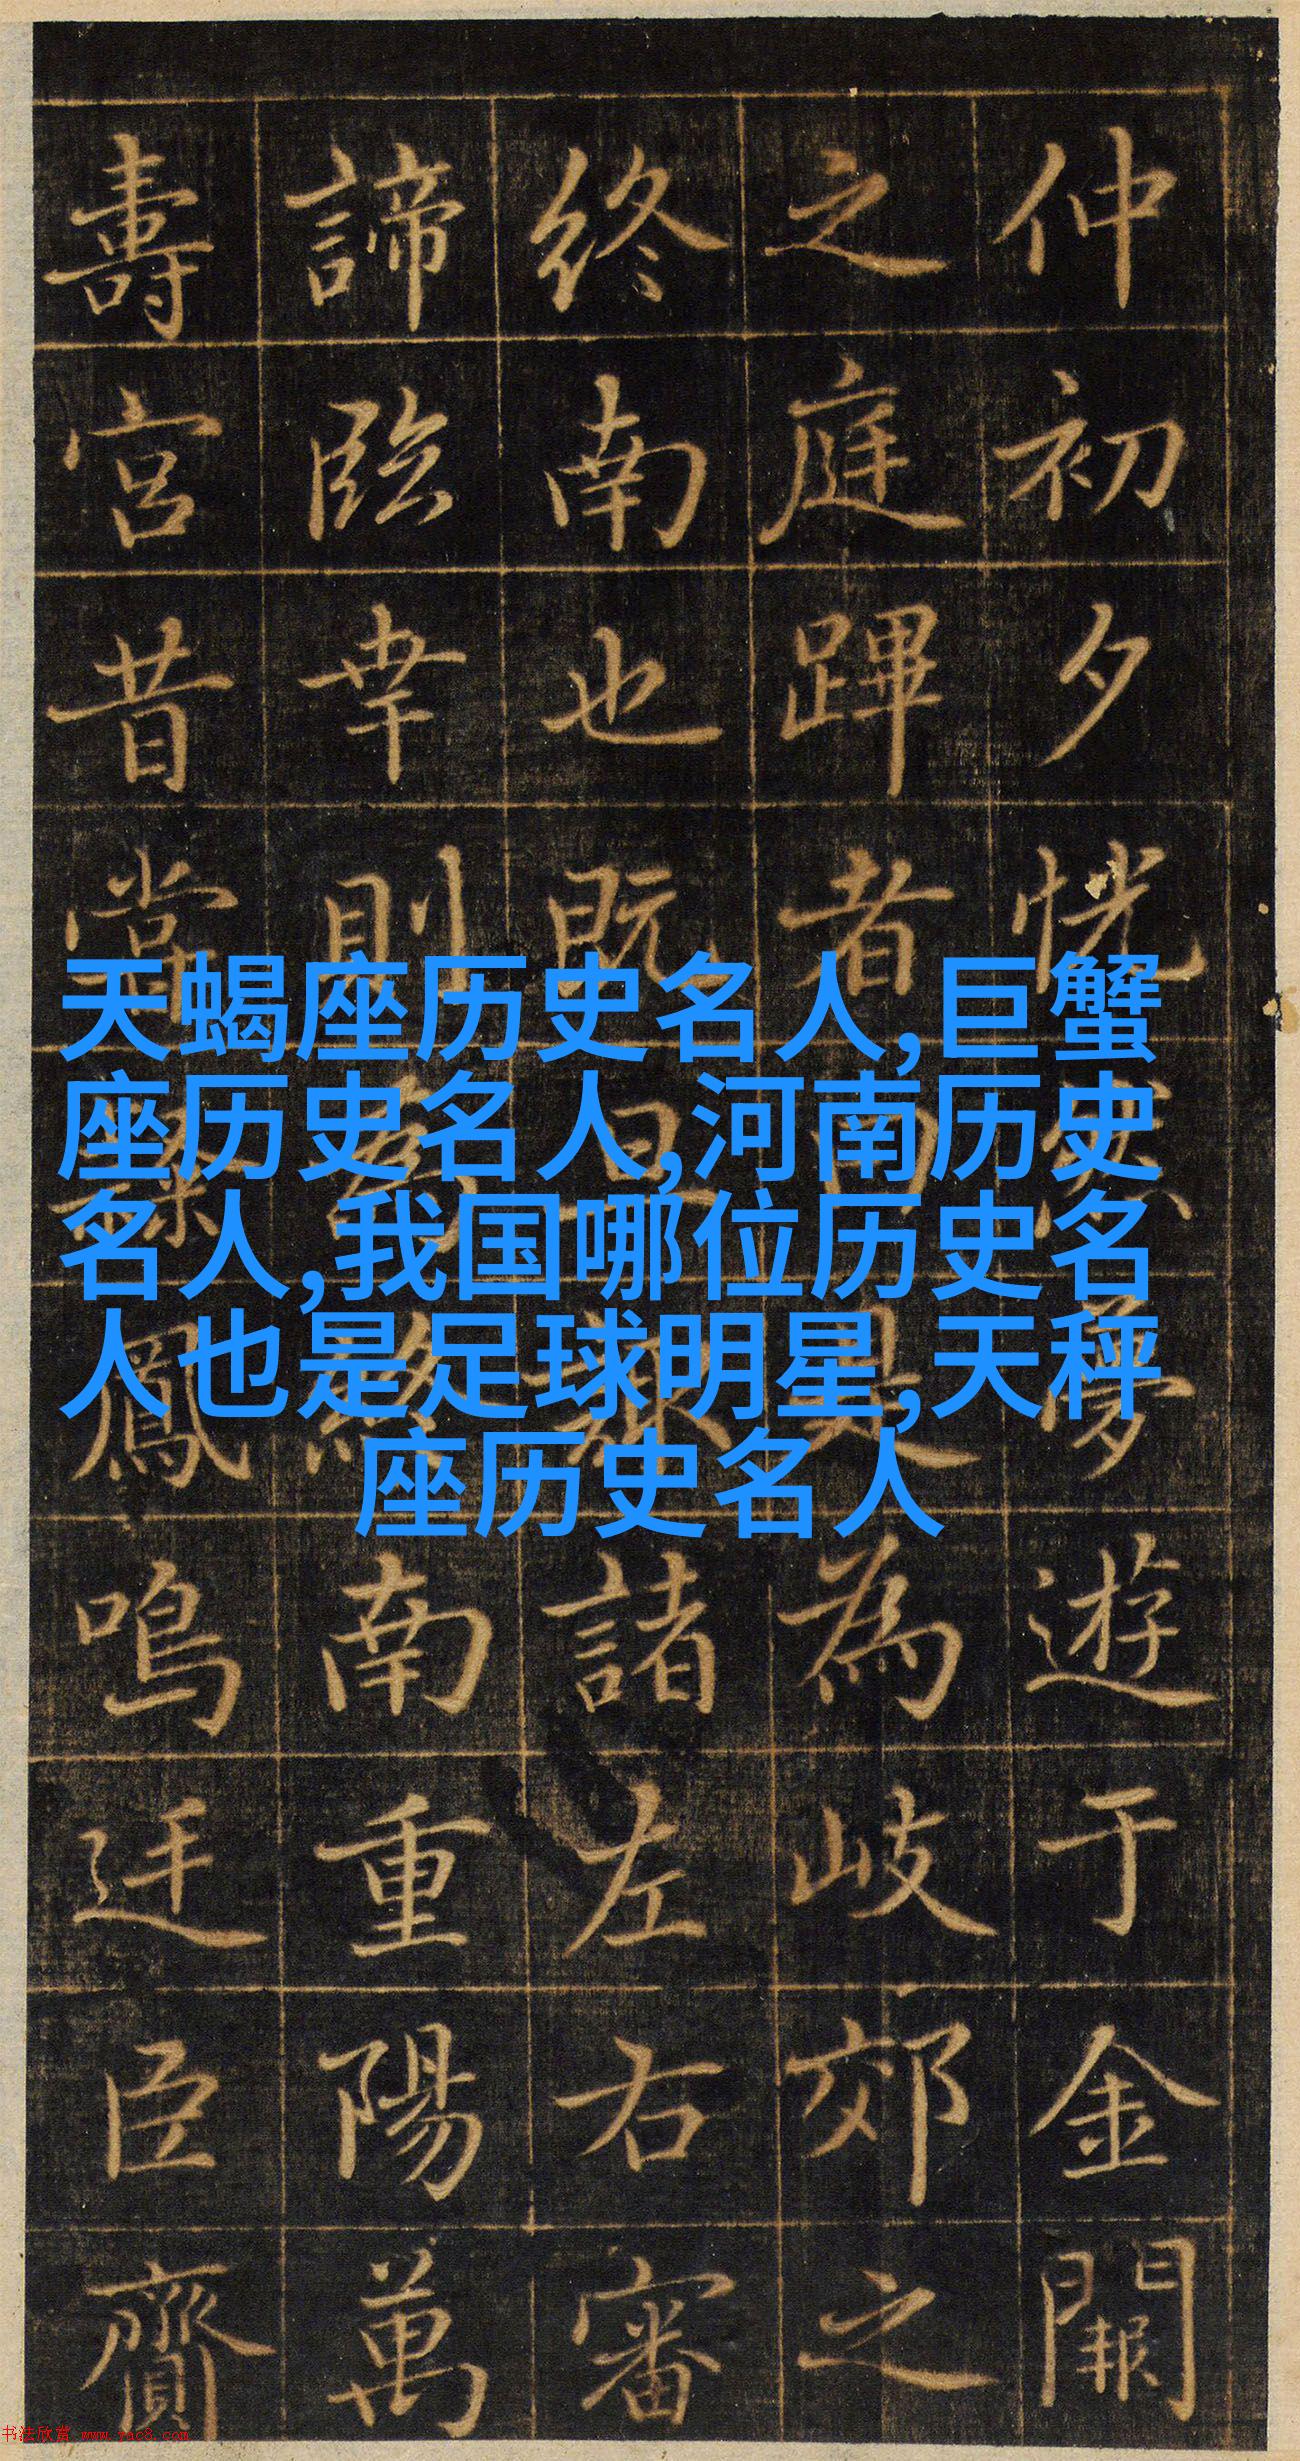 仲初夕恍然夢遊于金闕
之庭蹕者曰是為岐郊之
終南也既諸左右審
諦臨幸則終南重陽萬
壽宮昔嘗鳳鳴迋臣齎
天蝎座历史名人,巨蟹
座历史名人,河南历史
名人,我国哪位历史名
人也是足球明星,天秤
座历史名人
书法欣赏 www.yac8.com